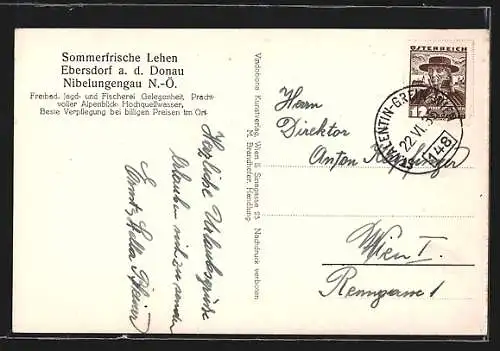 Sommerfrische Lehen
Ebersdorf a. d. Donau
Nibelungengau N.-Ö.
Freibad, Jagd- und Fischerei Gelegenheit, Pracht-
voller Alpenblick, Hochquellwasser,
Beste Verpflegung bei billigen Preisen im Ort
Herzliche Urlaubsgrüße
erlauben sich zu senden
Vindobona Kunstverlag, Wien 8 Nachdruck verboten
M. Handlung
ÖSTERREICH
22.VI.35
148
Herrn
Direktor
Anton
Wien I.
Renngasse 1